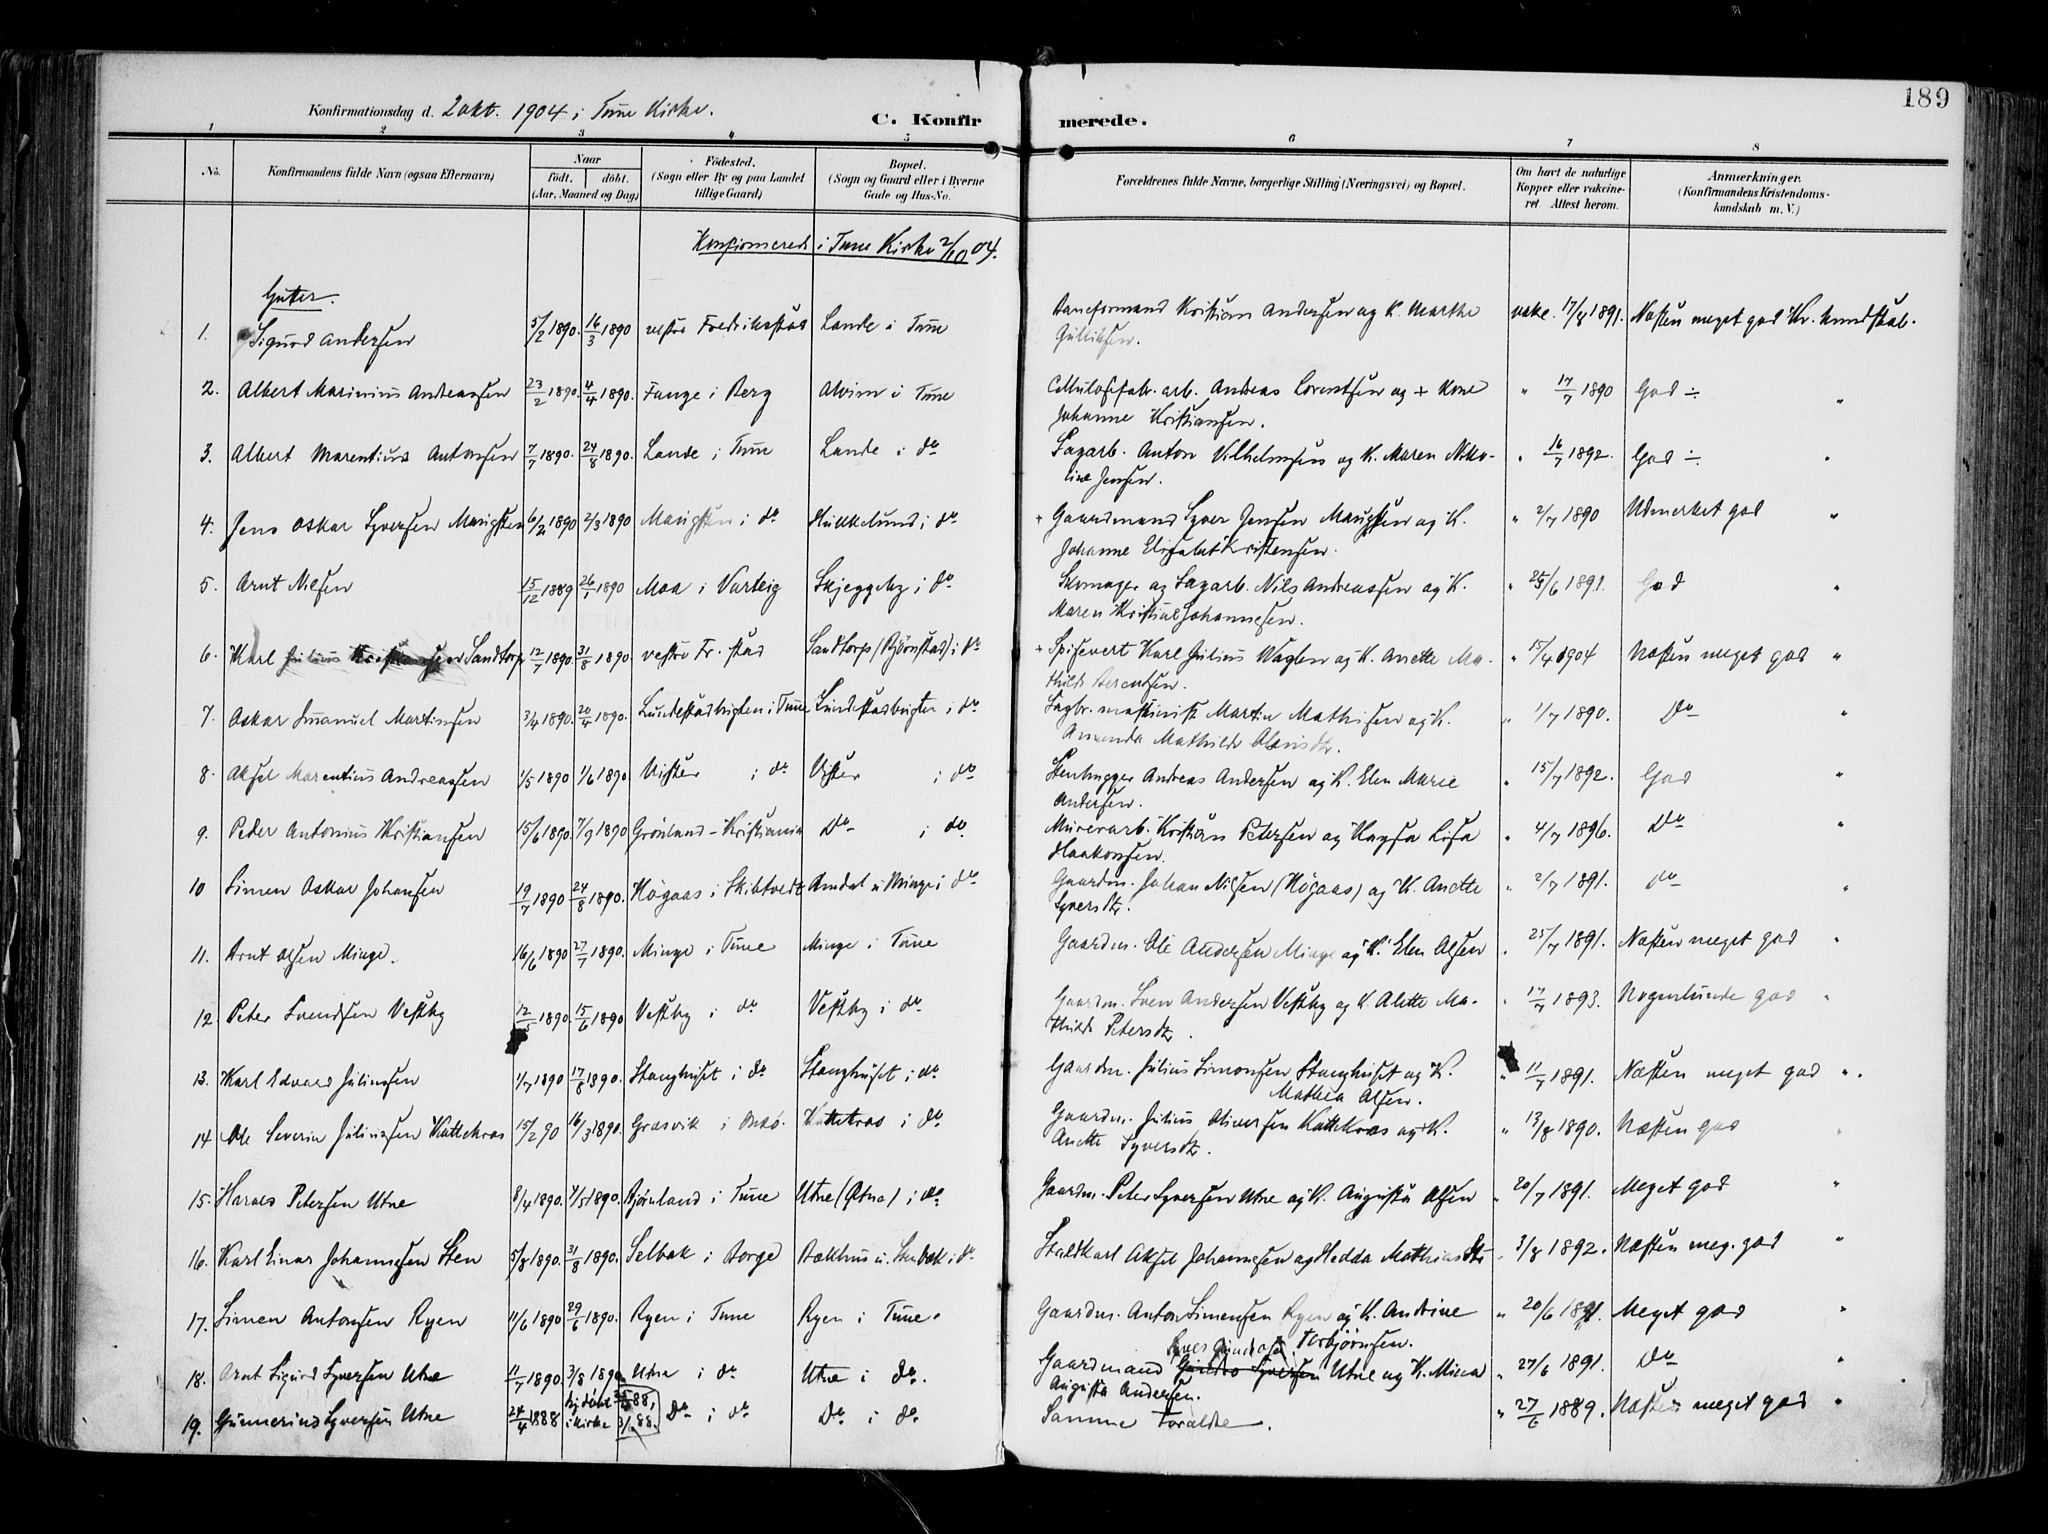 189
Konfirmationsdag d. 2 okt. 1904 i Tune Kirke.
C. Konfirmerede.
1 2 3 4 5 6 7 8
No. Konfirmandens fulde Navn (ogsaa Efternavn) Naar födt. döbt. (Aar, Maaned og Dag) Födested. (Sogn eller By og paa Landet tillige Gaard) Bopæl. (Sogn og Gaard eller i Byerne Gade og Hus-No. Forældrenes fulde Navne, borgerlige Stilling (Næringsvei) og Bopæl. Om havt de naturlige Kopper eller vaccineret Attest herom. Anmærkninger. (Konfirmandens Kristendomskundskab m. V.)
Konfirmerede i Tune Kirke 2/10 04.
Gutter.
1. Sigurd Andersen 5/2 1890. 16/3 1890 vestre Fredriksstad Lande i Tune Kristian Andersen og K. Marthe vakc. 17/8 1891. Næsten meget god Kr. kundskab.
Gulliksen.
2. Albert Marinius Andreassen 23/2 1890. 4/4 1890. Fange i Berg Alvim i Tune Cellulosefabr. arb. Andreas Lorentsen og + Kone " 17/7 1890 God ÷ "
Johanne Kristiansen.
3. Albert Marentius Antonsen 7/7 1890. 24/8 1890. Lande i Tune Lande i do Sagarb. Anton Vilhelmsen og K. Maren Niko- " 16/7 1892. God ÷ "
line Jensen.
4. Jens Oskar Syversen Maugsten 6/2 1890 2/3 1890 Maugsten i do Hukkelund i do + Gaardmand Syver Jensen Maugsten og K. " 2/7 1890 Udmerket god "
Johanne Elisabet Kristensen.
5. Arnt Nilsen 15/12 1889 26/1 1890 Moa i Varteig Skjeggeby i do Skomager og Sagarb. Nils Andreassen og K. " 25/6 1891. God "
Maren Kristine Johannesen.
6. Karl Julius Sandtorp 12/7 1890. 31/8 1890. vestre Fr.stad Sandtorp (Bjørnstad) i do + Spisevert Karl Julius Waglen og K. Anette Ma- " 15/4 1904 Næsten meget god "
thilde Berentsen.
7. Oskar Emanuel Martinsen 3/4 1890. 20/4 1890. Lundestadbugten i Tune Lundestadbugten i do Sagbr. maskinist Martin Mathisen og K. " 1/7 1890. Do "
Amanda Mathilde
8. Aksel Marentius Andreassen 1/5 1890 1/6 1890 Vister i do Vister i do Stenhugger Andreas Andersen og K. Elen Marie " 15/7 1892. God "
Andersen.
9. Peder Antonius Kristiansen 15/6 1890. 7/9 1890 Grønland - Kristiania Do i do Murerarb. Kristian Petersen og Kagsa Lisa " 4/7 1896. Do "
Haakonsen.
10 Simen Oskar Johansen 19/7 1890 24/8 1890. Høgaas i Skibtvedt Amdal u. Minge i do Gaardm. Johan Nilsen (Høgaas) og K. Anette " 2/7 1891. do "
Syversdtr.
11. Arnt Olsen Minge. 16/6 1890 27/7 1890. Minge i Tune Minge i Tune Gaardm. Ole Andersen Minge og K. Elen Olsen " 25/7 1891. Næsten meget god "
12. Peter Svendsen Vestby 12/5 1890. 15/6 1890 Vestby i do Vestby i do Gaardm. Sven Andersen Vestby og K. Alette Ma- " 17/7 1893. Nogenlunde god "
thilde Petersdtr.
13. Karl Edvard Juliussen 1/7 1890 17/8 1890. Stanghuset i do Stanghuset i do Gaardm. Julius Simonsen Stanghuset og K. " 11/7 1891. Næsten meget god "
Mathea Olsen.
14 Ole Severin Juliussen Kattekras 15/2 90 16/3 1890. Græsvik i Onsø. Kattekras i do Gaardm. Julius Oliversen Kattekras og K. " 13/8 1890. Næsten god "
Anette Syversdtr.
15. Hannes Petersen Utne 8/4 1890. 7/5 1890. Bjørnland i Tune Utne (Øtne) i do Gaardm. Peter Syversen Utne og K. Augusta Olsen " 20/7 1891. Meget god "
16. Karl Einar Johannesen Sten 5/8 1890. 31/8 1890. Selbak i Borge Bakhus u. Stenbæk i do Staldkarl Aksel Johannesen og Hedda Mathias Dtr - 3/8 1892. Næsten meg. god "
17. Simen Antonsen Ryen 11/6 1890 29/6 1890. Ryen i Tune Ryen i Tune. Gaardm. Anton Simensen Ryen og K. Andrine " 20/6 1891. Meget god "
Torbjørnsen.
18. Arnt Sigurd Syversen Utne 11/7 1890. 3/8 1890 Utne i do Utne i do. Gaardmand Syver Gundersen Utne og K. Mina " 27/6 1891. Do "
Augusta Andersen.
19. Gunnerius Syversen Utne 24/4 1888 hj. døbt 88, i Kirke 88. Do i do Do i do Samme Forældre. " 27/6 1889. Næsten meget god "